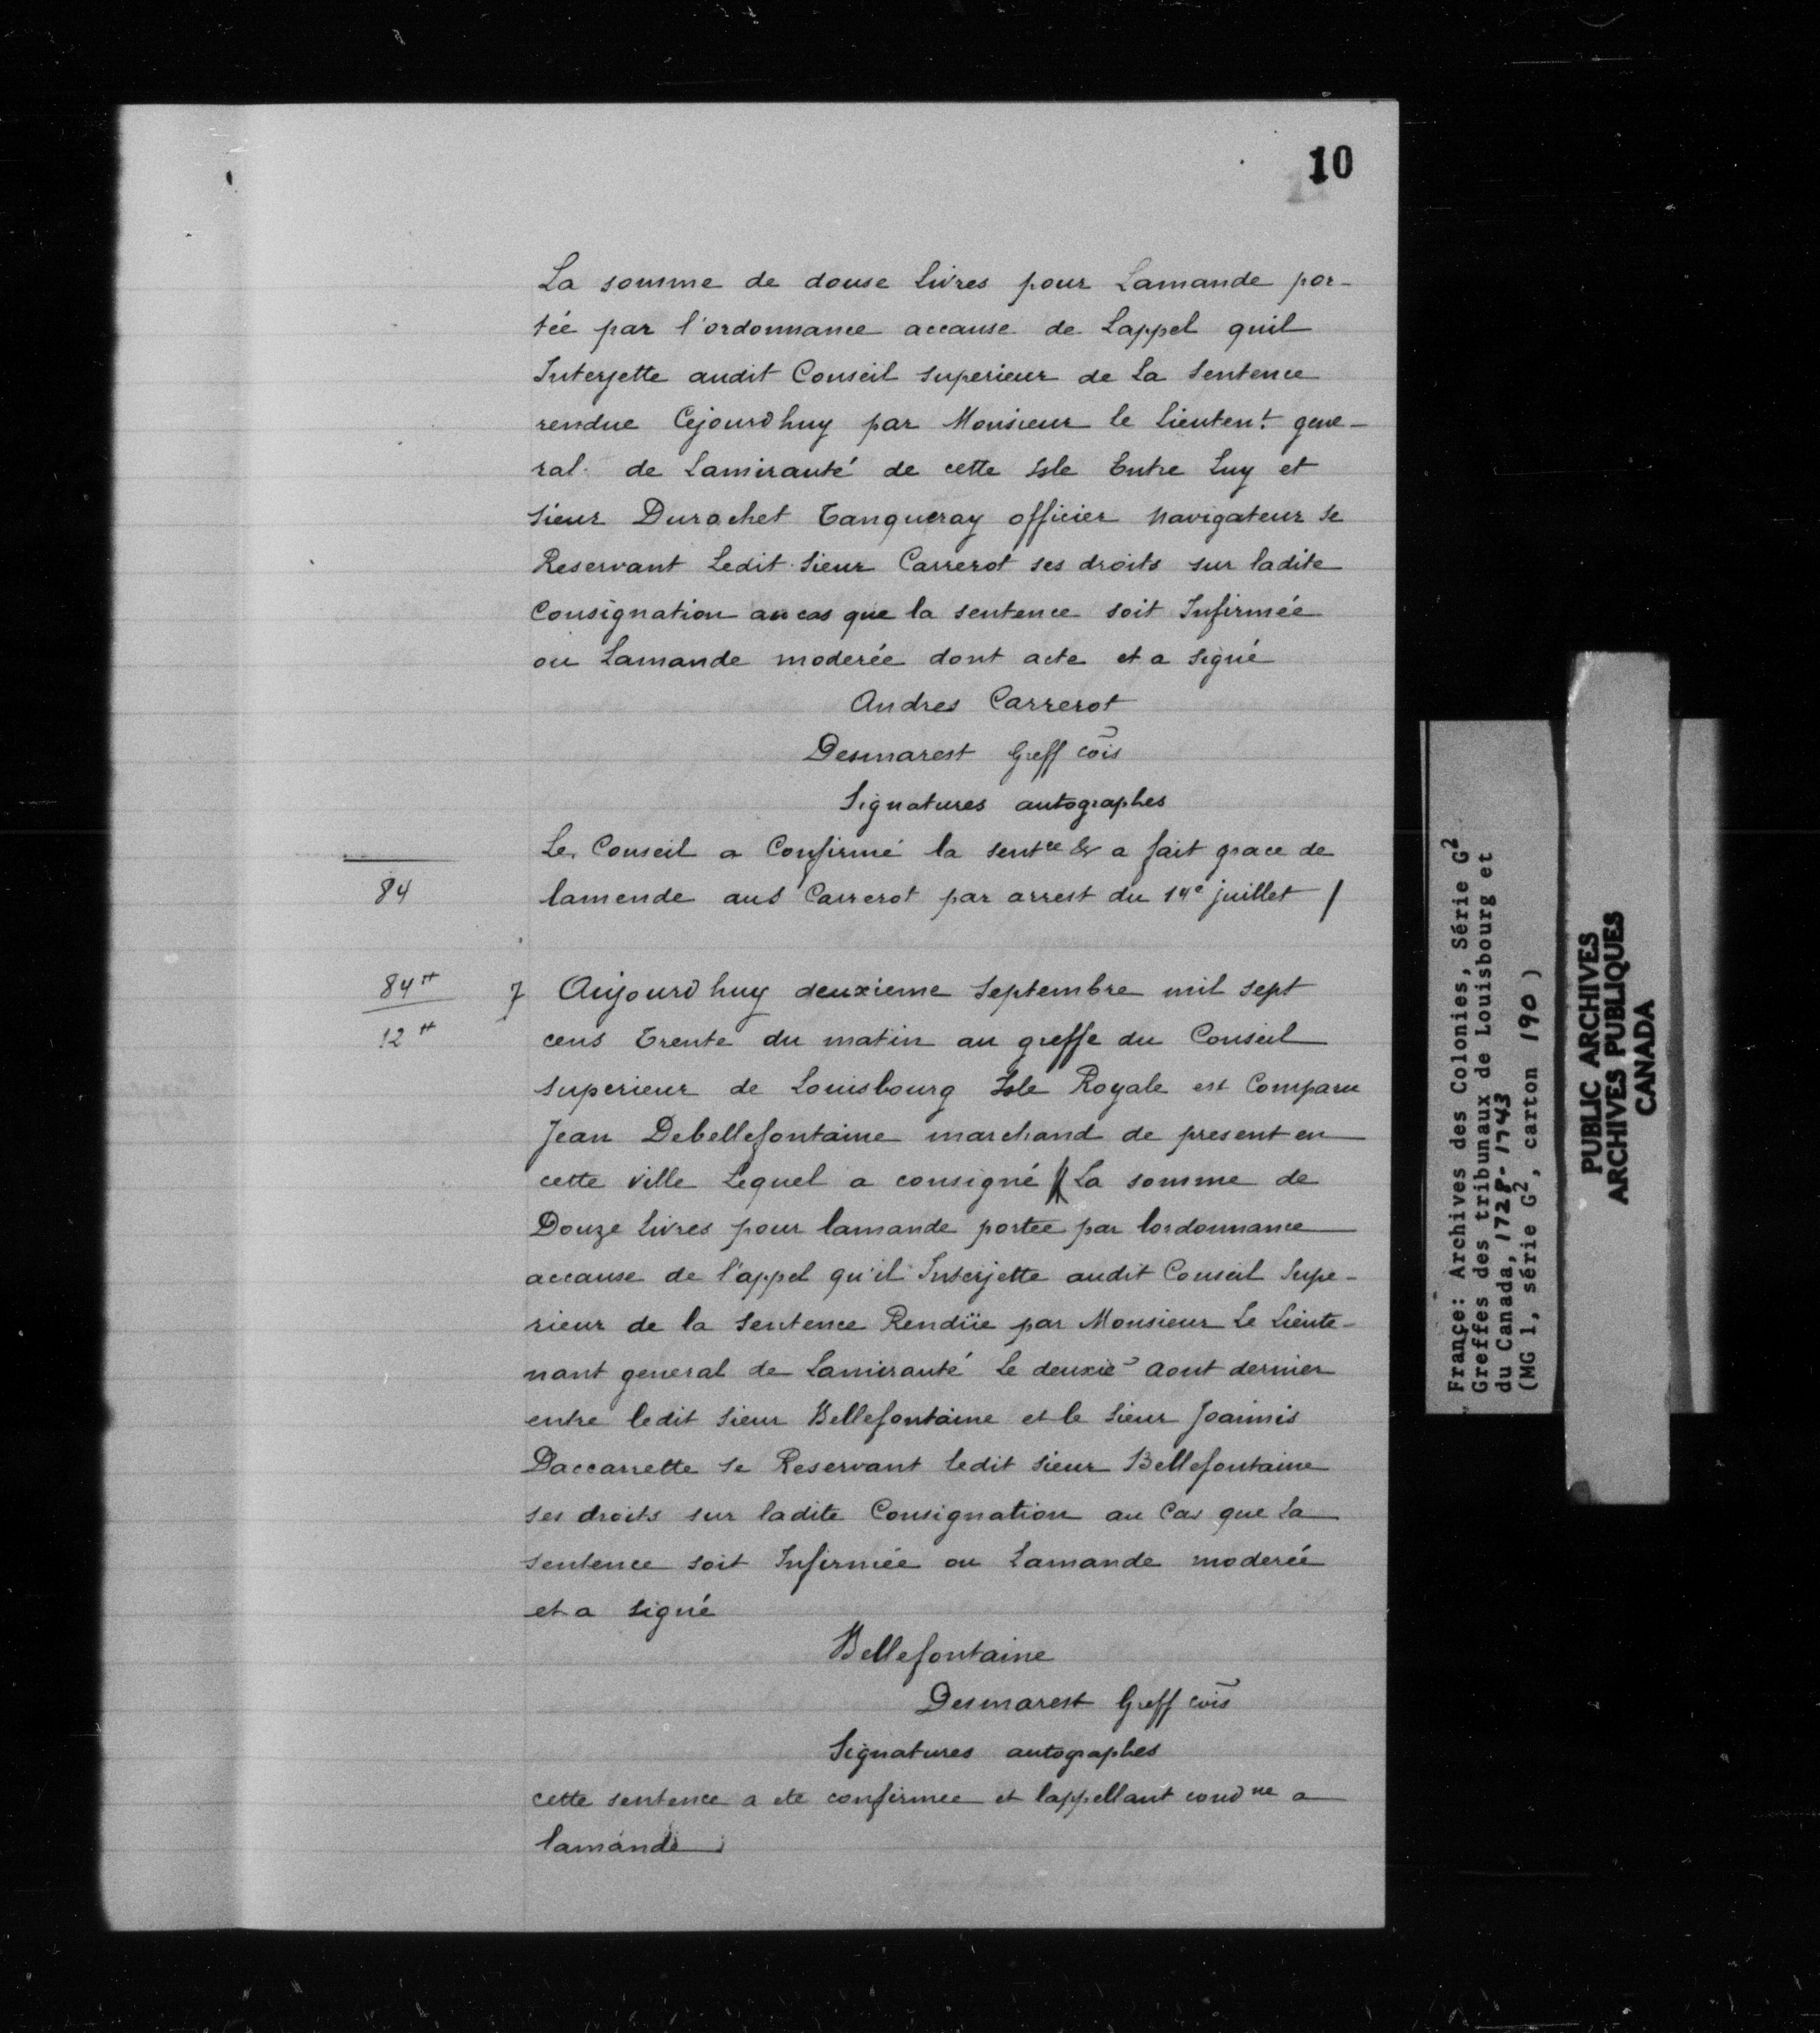 10
La somme de douse livres pour Lamande por-
tée par l'ordonnance accause de Lappel quil
Interjette audit Conseil superieur de La Sentence
rendue Cejourdhuy par Monsieur le Lieuten.t gene-
ral de Lamirauté de cette Isle Entre Luy et
Sieur Durochet Tanqueray officier Navigateur se
Reservant Ledit Sieur Carrerot ses droits sur ladite
Consignation au cas que la sentence soit Infirmée
ou Lamande moderée dont acte et a signé
Andres Carrerot
Desmarest Greff cõis
Signatures autographes
Le Conseil a Confirmé la sentce & a fait grace de
84 lamende aud Carrerot par arrest du 14e juillet /
84tt 7 Aujourdhuy deuxieme Septembre mil sept
12tt cens Trente du matin au greffe du Conseil
superieur de Louisbourg Isle Royale est Comparu
Jean Debellefontaine marchand de present en
cette ville Lequel a consigné La somme de
Douze livres pour lamande portée par lordonnance
accause de l'appel qu'il Interjette audit Conseil Supe-
rieur de la Sentence Rendüe par Monsieur Le Lieute-
nant general de Lamirauté Le deuxie Aout dernier
entre ledit Sieur Bellefontaine et le Sieur Joannis
Daccarrette se Reservant ledit Sieur Bellefontaine
ses droits sur ladite Consignation au Cas que La
sentence soit Infirmée ou Lamande moderée
et a signé
Bellefontaine
Desmarest Greff cõis
Signatures autographes
cette sentence a ete confirmee et lappellant condne a
lamande
France: Archives des Colonies, Série G2
Greffes des tribunaux de Louisbourg et
du Canada, 1728-1743
(MG 1, série G2, carton 190)
PUBLIC ARCHIVES
ARCHIVES PUBLIQUES
CANADA